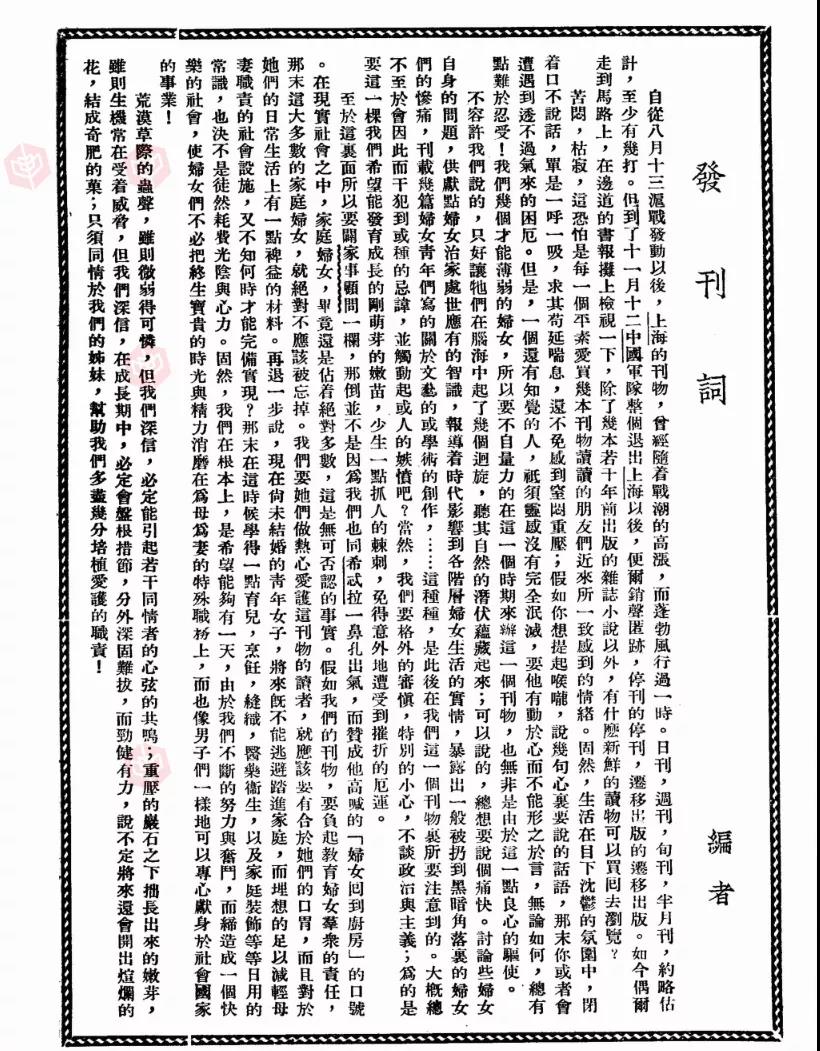 發刊詞
編者
自從八月十三滬戰發動以後，上海的刊物，曾經隨着戰潮的高漲，而蓬勃風行過一時。日刊，週刊，旬刊，半月刊，約略估
計，至少有幾打。但到了十一月十二中國軍隊整個退出上海以後，便爾銷聲匿跡，停刊的停刊，遷移出版的遷移出版。如今偶爾
走到馬路上，在邊道的書報攤上檢視一下，除了幾本若干年前出版的雜誌小說以外，有什麽新鮮的讀物可以買回去瀏覽？
苦悶，枯寂，這恐怕是每一個平素愛買幾本刊物讀讀的朋友們近來所一致感到的情緒。固然，生活在目下沈鬱的氛圍中，閉
着口不說話，單是一呼一吸，求其苟延喘息，還不免感到窒悶重壓；假如你想提起喉嚨，說幾句心裏要說的話語，那末你或者會
遭遇到透不過氣來的困厄。但是，一個還有知覺的人，祇須靈感沒有完全泯滅，要他有動於心而不能形之於言，無論如何，總有
點難於忍受！我們幾個才能薄弱的婦女，所以要不自量力的在這一個時期來辦這一個刊物，也無非是由於這一點良心的驅使。
不容許我們說的，只好讓牠們在腦海中起了幾個迴旋，聽其自然的潛伏蘊藏起來；可以說的，總想要說個痛快。討論些婦女
自身的問題，供獻點婦女治家處世應有的智識，報導着時代影響到各階層婦女生活的實情，暴露出一般被扔到黑暗角落裏的婦女
們的慘痛，刊載幾篇婦女青年們寫的關於文藝的或學術的創作，……這種種，是此後在我們這一個刊物裏所要注意到的。大概總
不至於會因此而干犯到或種的忌諱，並觸動起或人的嫉憤吧？當然，我們要格外的審愼，特別的小心，不談政治與主義；爲的是
要這一棵我們希望能發育成長的剛萌芽的嫩苗，少生一點抓人的棘刺，免得意外地遭受到摧折的厄運。
至於這裏面所以要闢家事顧問一欄，那倒並不是因爲我們也同希忒拉一鼻孔出氣，而贊成他高喊的「婦女囘到廚房」的口號
。在現實社會之中，家庭婦女，畢竟還是佔着絕對多數，這是無可否認的事實。假如我們的刊物，要負起敎育婦女羣衆的責任，
那末這大多數的家庭婦女，就絕對不應該被忘掉。我們要她們做熱心愛護這刊物的讀者，就應該要有合於她們的口胃，而且對於
她們的日常生活上有一點裨益的材料。再退一步說，現在尙未結婚的靑年女子，將來旣不能逃避踏進家庭，而理想的足以減輕母
妻職責的社會設施，又不知何時才能完備實現？那末在這時候學得一點育兒，烹飪，縫織，醫藥衞生，以及家庭裝飾等等日用的
常識，也決不是徒然耗費光陰與心力。固然，我們在根本上，是希望能夠有一天，由於我們不斷的努力與奮鬥，而締造成一個快
樂的社會，使婦女們不必把終生寶貴的時光與精力消磨在爲母爲妻的特殊職務上，而也像男子們一樣地可以專心獻身於社會國家
的事業！
荒漠草際的蟲聲，雖則微弱得可憐，但我們深信，必定能引起若干同情者的心弦的共鳴；重壓的巖石之下擠長出來的嫩芽，
雖則生機常在受着威脅，但我們深信，在成長期中，必定會盤根措節，分外深固難拔，而勁健有力，說不定將來還會開出煊爛的
花，結成奇肥的菓；只須同情於我們的姊妹，幫助我們多盡幾分培植愛護的職責！